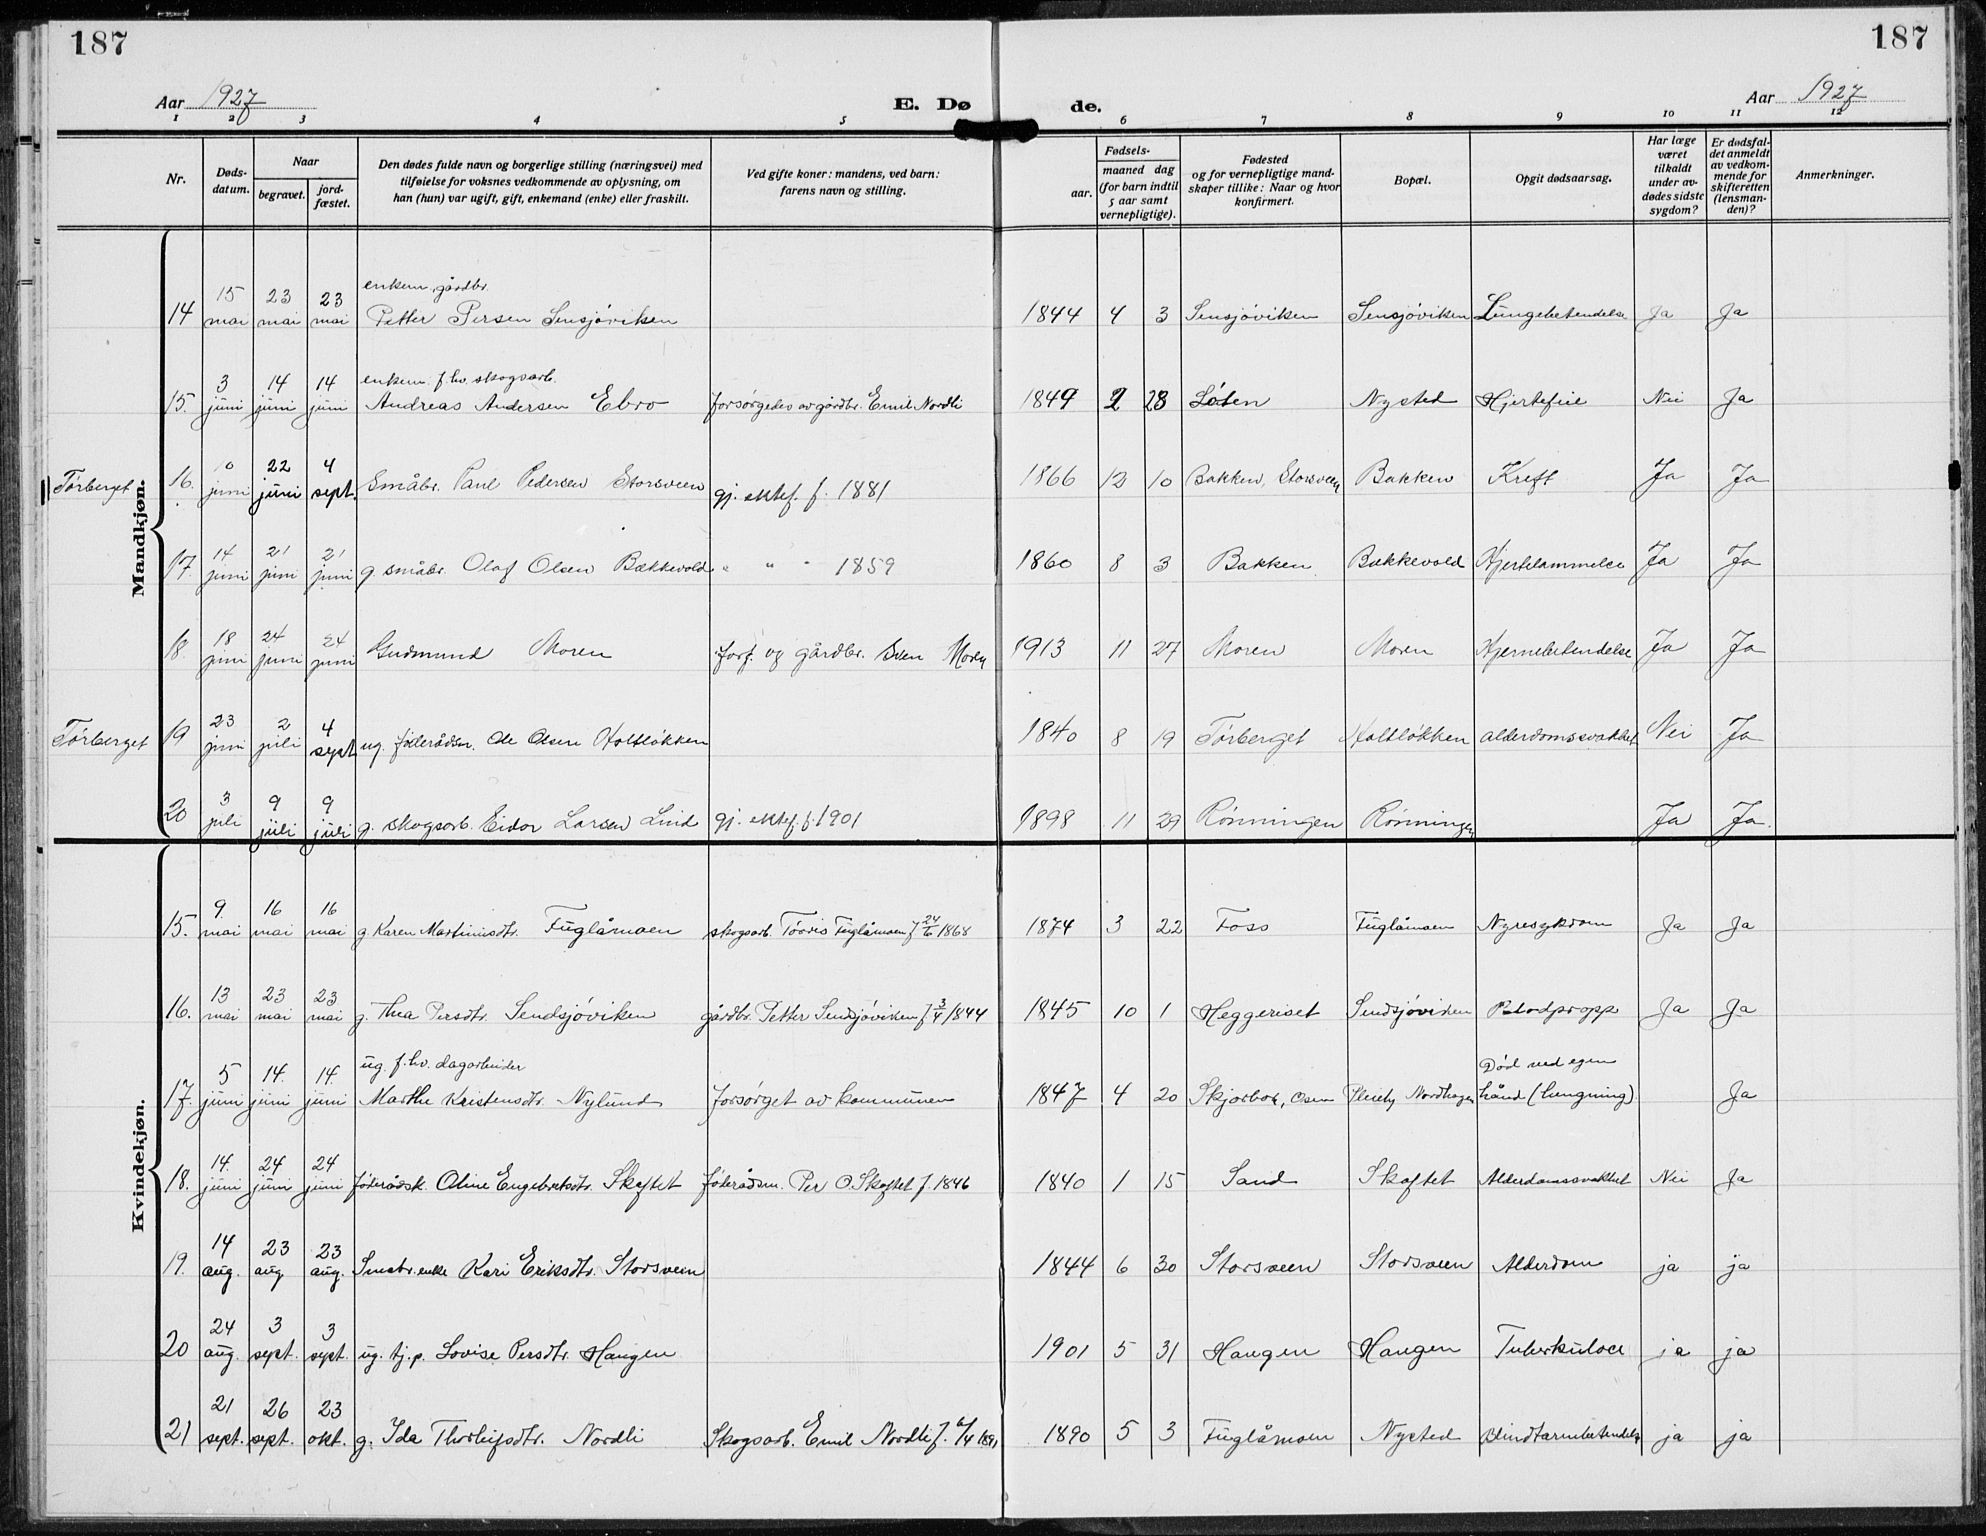 187
187
Aar 1927
E. Dø
de.
Aar 1927
1 2 3 4 5 6 7 8 9 10 11 12
Nr.
Døds-
datum.
Naar
begravet.
jord-
fæstet.
Den dødes fulde navn og borgerlige stilling (næringsvei) med
tilføielse for voksnes vedkommende av oplysning, om
han (hun) var ugift, gift, enkemand (enke) eller fraskilt.
Ved gifte koner: mandens, ved barn:
farens navn og stilling.
Fødsels-
aar.
maaned dag
(for barn indtil
5 aar samt
vernepligtige).
Fødested
og for vernepligtige mand-
skaper tillike: Naar og hvor
konfirmert.
Bopæl.
Opgit dødsaarsag.
Har læge
været
tilkaldt
under av-
dødes sidste
sygdom?
Er dødsfal-
det anmeldt
av vedkom-
mende for
skifteretten
(lensman-
den)?
Anmerkninger.
Mandkjøn.
15 23 23 enkem. gårdbr.
14 mai mai mai Petter Persen Sensjøviken 1844 4 3 Sensjøviken Sensjøviken Lungebetendelse Ja Ja
3 14 14 enkem. f.hv. skogsarb.
15. juni juni juni Andreas Andersen Ebro forsørgedes av gårdbr. Emil Nordli 1849 2 28 Løten Nysted Hjertefeil Nei Ja
10 22 4
Tørberget 16. juni juni sept. Småbr. Paul Pedersen Storsveen gj. ektef. f. 1881 1866 12 10 Bakken, Storsveen Bakken Kreft Ja Ja
14 21 21
17. juni juni juni g. småbr. Olaf Olsen Bakkevold " " " 1859 1860 8 3 Bakken Bakkevold Hjertelammelse Ja Ja
18 24 24
18. juni juni juni Gudmund Moren forf. og gårdbr. Sven Moren 1913 11 27 Moren Moren Hjernebetendelse Ja Ja
23 2 4
Tørberget 19 juni juli sept ug. føderådsm. Ole Olsen Holtløkken 1840 8 19 Tørberget Holtløkken alderdomssvakhet Nei Ja
3 9 9
20 juli juli juli g. skogsarb. Eidor Larsen Lind gj. ektef. f. 1901 1898 11 29 Rønningen Rønningen Ja Ja
Kvindekjøn.
9 16 16
15. mai mai mai g. Karen Martinusdtr. Fuglåmoen skogsarb. Fuglåmoen f 24/6 1868 1874 3 22 Foss Fuglåmoen Nyresykdom Ja Ja
13 23 23
16. mai mai mai g. Thea Persdtr. Sendsjøviken gårdbr. Petter Sendsjøviken f 3/4 1844 1845 10 1 Heggeriset Sendsjøviken Blodpropp Ja Ja
5 14. 14. ug. f.hv. dagarbeider Død ved egen
17. juni juni juni Marthe Kristensdtr. Nylund forsørget av kommunen 1847 4 20 Skjærbæk, Osen Pleiehj. Nordhagen hånd (hengning). Ja
14. 24 24
18. juni juni juni føderådsk. Oline Engebretsdtr. Skaftet føderådsm. Per O. Skaftet f. 1846 1840 1 15 Sand Skaftet Alderdomssvakhet Nei Ja
14 23 23
19. aug. aug aug. Småbr. enke Kari Eriksdtr. Storsveen 1844 6 30 Storsveen Storsveen Alderdom ja ja
24 3 3
20 aug. sept. sept. ug. tj. p. Lovise Persdtr. Haugen 1901 5 31 Haugen Haugen Tuberkulose ja ja
21 26 23
21 sept. sept. okt. g. Ida Thorleifsdtr. Nordli Skogsarb. Emil Nordli f. 1890 5 3 Fuglåmoen Nysted Blindtarmbetendelse ja ja